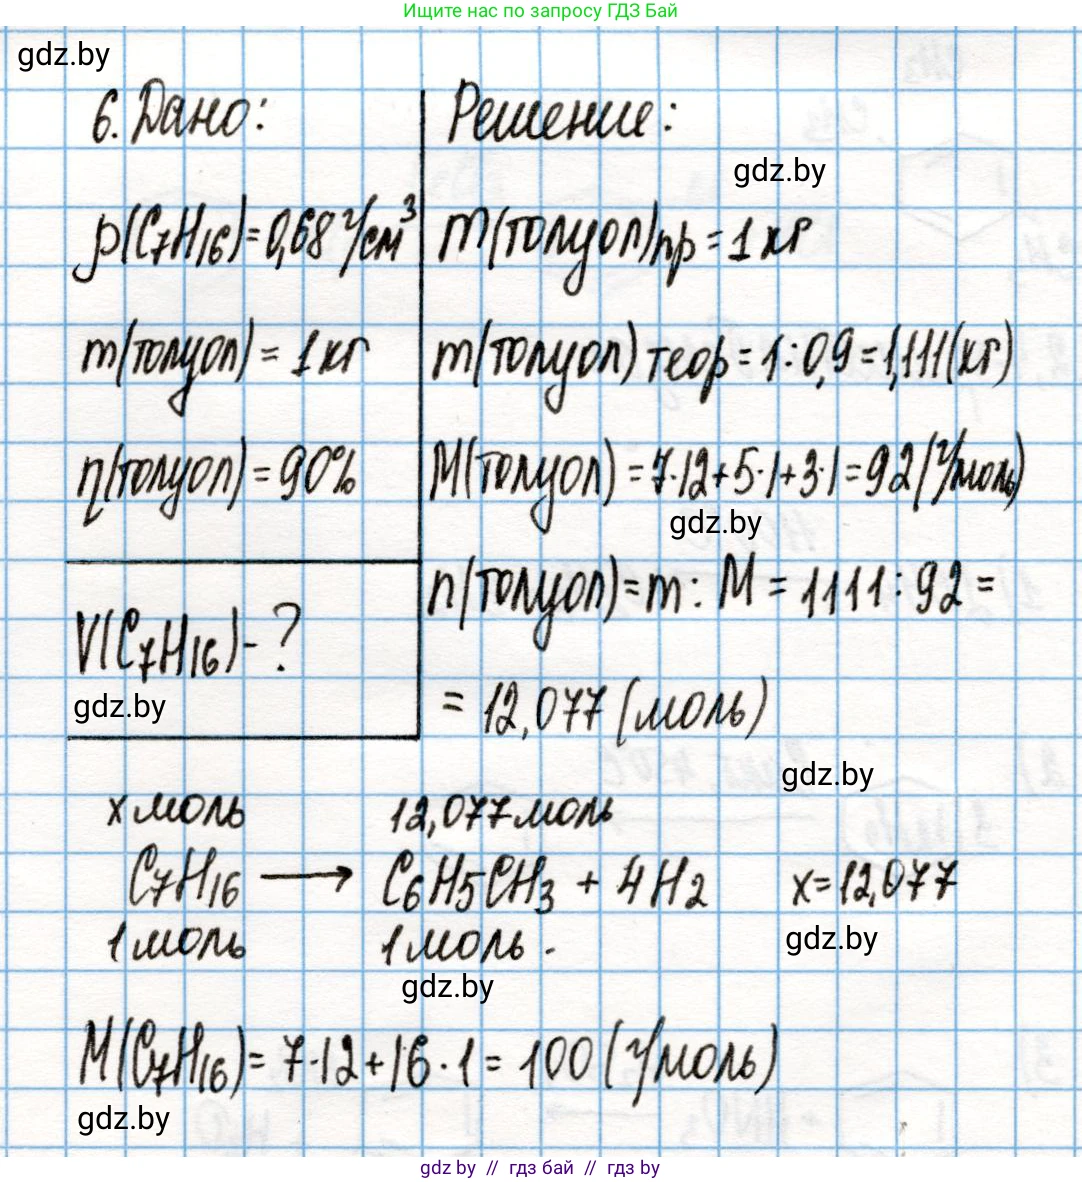 Ищите нас по запросу ГДЗ Бай
gdz.by
6. Дано:
ρ(C₇H₁₆)=0,68 г/см³
m(толуол) = 1 кг
η(толуол) = 90%
V(C₇H₁₆) - ?
gdz.by
Решение:
gdz.by
m(толуол)пр = 1 кг
m(толуол) теор = 1 : 0,9 = 1,111 (кг)
M(толуол) = 7·12+5·1+3·1 = 92 (г/моль)
gdz.by
n(толуол) = m : M = 1111 : 92 =
= 12,077 (моль)
gdz.by
x моль 12,077 моль
C₇H₁₆ → C₆H₅CH₃ + 4H₂ x = 12,077
1 моль 1 моль .
gdz.by
gdz.by
M(C₇H₁₆) = 7·12+16·1 = 100 (г/моль)
gdz.by
gdz by // гдз бай // гдз by